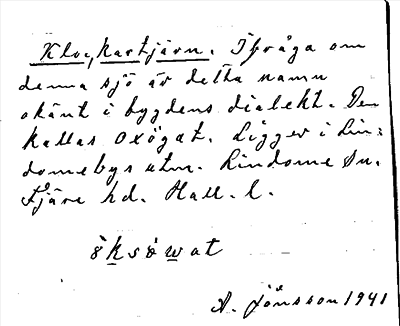 Klockartjärn. Ifråga om
denna sjö är detta namn
okänt i bygdens dialekt. Den
kallas oxögat. Ligger i Lin-
domebys utm. Lindome sn.
Fjäre hd. Hall. l.
ö̀ksö́wat
A. Jönsson 1941